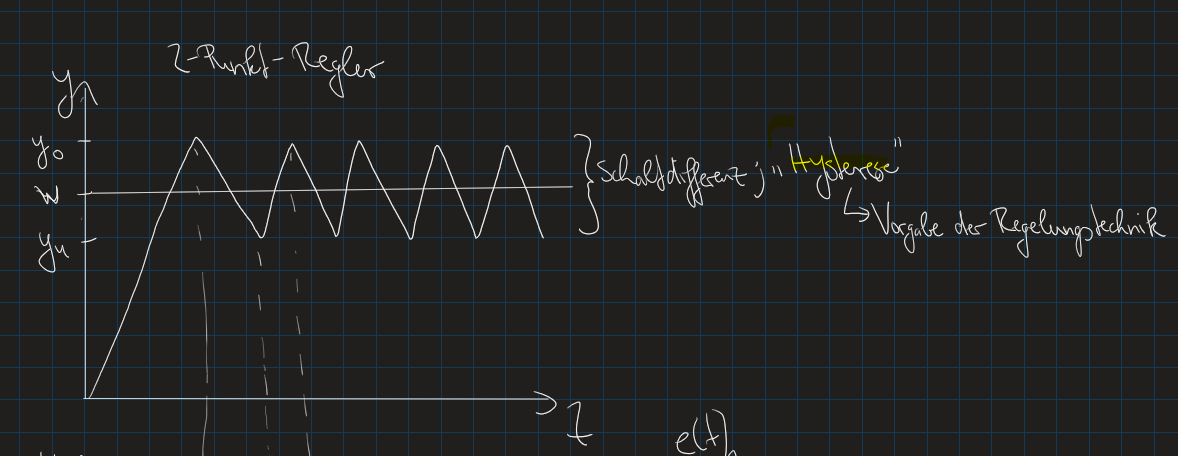 2-Punkt-Regler
y
yo
w
yu
Schaltdifferenz; "Hysterese"
↳ Vorgabe der Regelungstechnik
t
e(t)